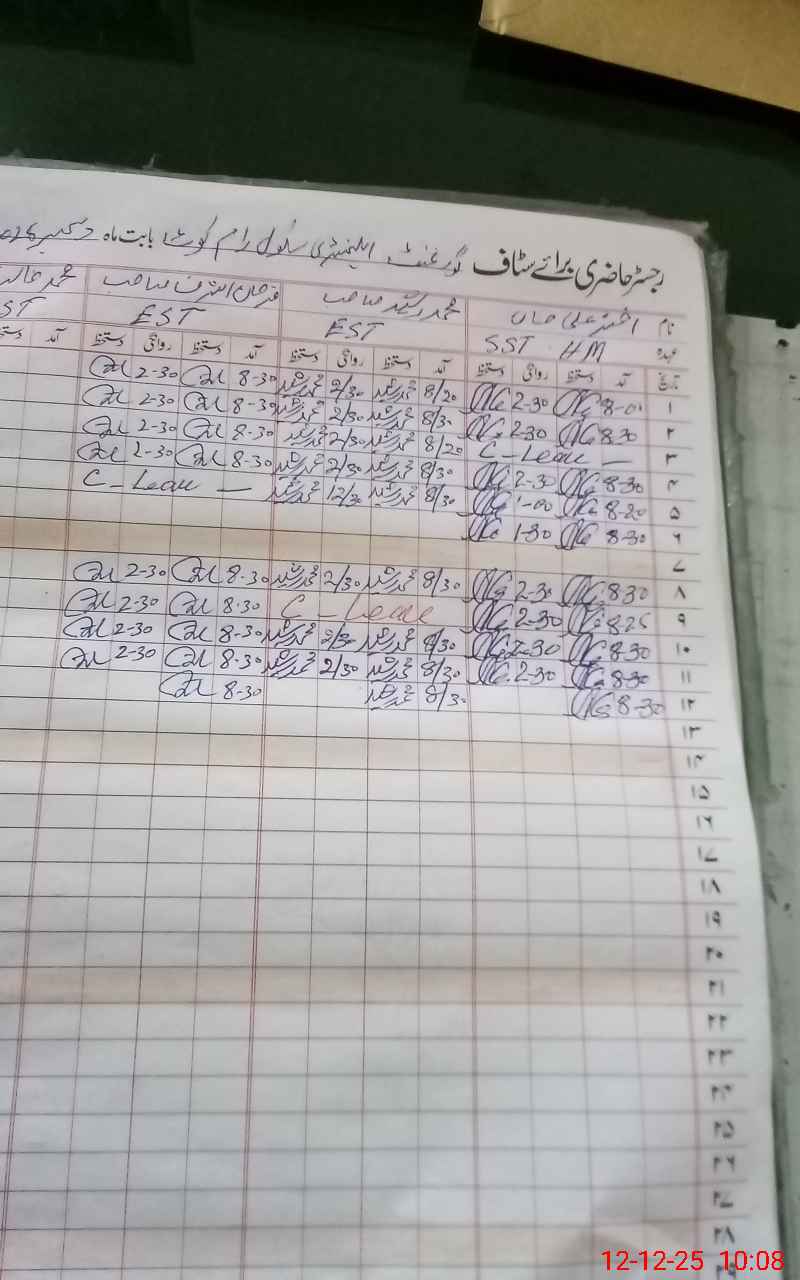 رجسٹر حاضری برائے سٹاف گورنمنٹ ایلیمنٹری سکول رام کوٹ بابت ماہ دسمبر
نام علی خان محمد رشید صاحب صاحب محمد
عہدہ SST HM EST EST ST
تاریخ آمد دستخط روانگی دستخط آمد دستخط روانگی دستخط آمد دستخط روانگی دستخط آمد
۱ 8-00 2-30 8/20 محمد رشید 2/30 محمد رشید 8-30 2-30
۲ 8-30 2-30 8/30 محمد رشید 2/30 محمد رشید 8-30 2-30
۳ C-Leave — 8/20 محمد رشید 2/30 محمد رشید 8-30 2-30
۴ 8-30 2-30 8/30 محمد رشید 2/30 محمد رشید 8-30 2-30
۵ 8-20 1-00 8/30 محمد رشید 12/30 محمد رشید C-Leave —
۶ 8-30 1-30
۷
۸ 8-30 2-30 8/30 محمد رشید 2/30 محمد رشید 8-30 2-30
۹ 8-25 2-30 C-Leave 8-30 2-30
۱۰ 8-30 2-30 8/30 محمد رشید 2/30 محمد رشید 8-30 2-30
۱۱ 8-30 2-30 8/30 محمد رشید 2/30 محمد رشید 8-30 2-30
۱۲ 8-30 8/30 محمد رشید 8-30
۱۳
۱۴
۱۵
۱۶
۱۷
۱۸
۱۹
۲۰
۲۱
۲۲
۲۳
۲۴
۲۵
۲۶
۲۷
۲۸
۲۹
12-12-25 10:08